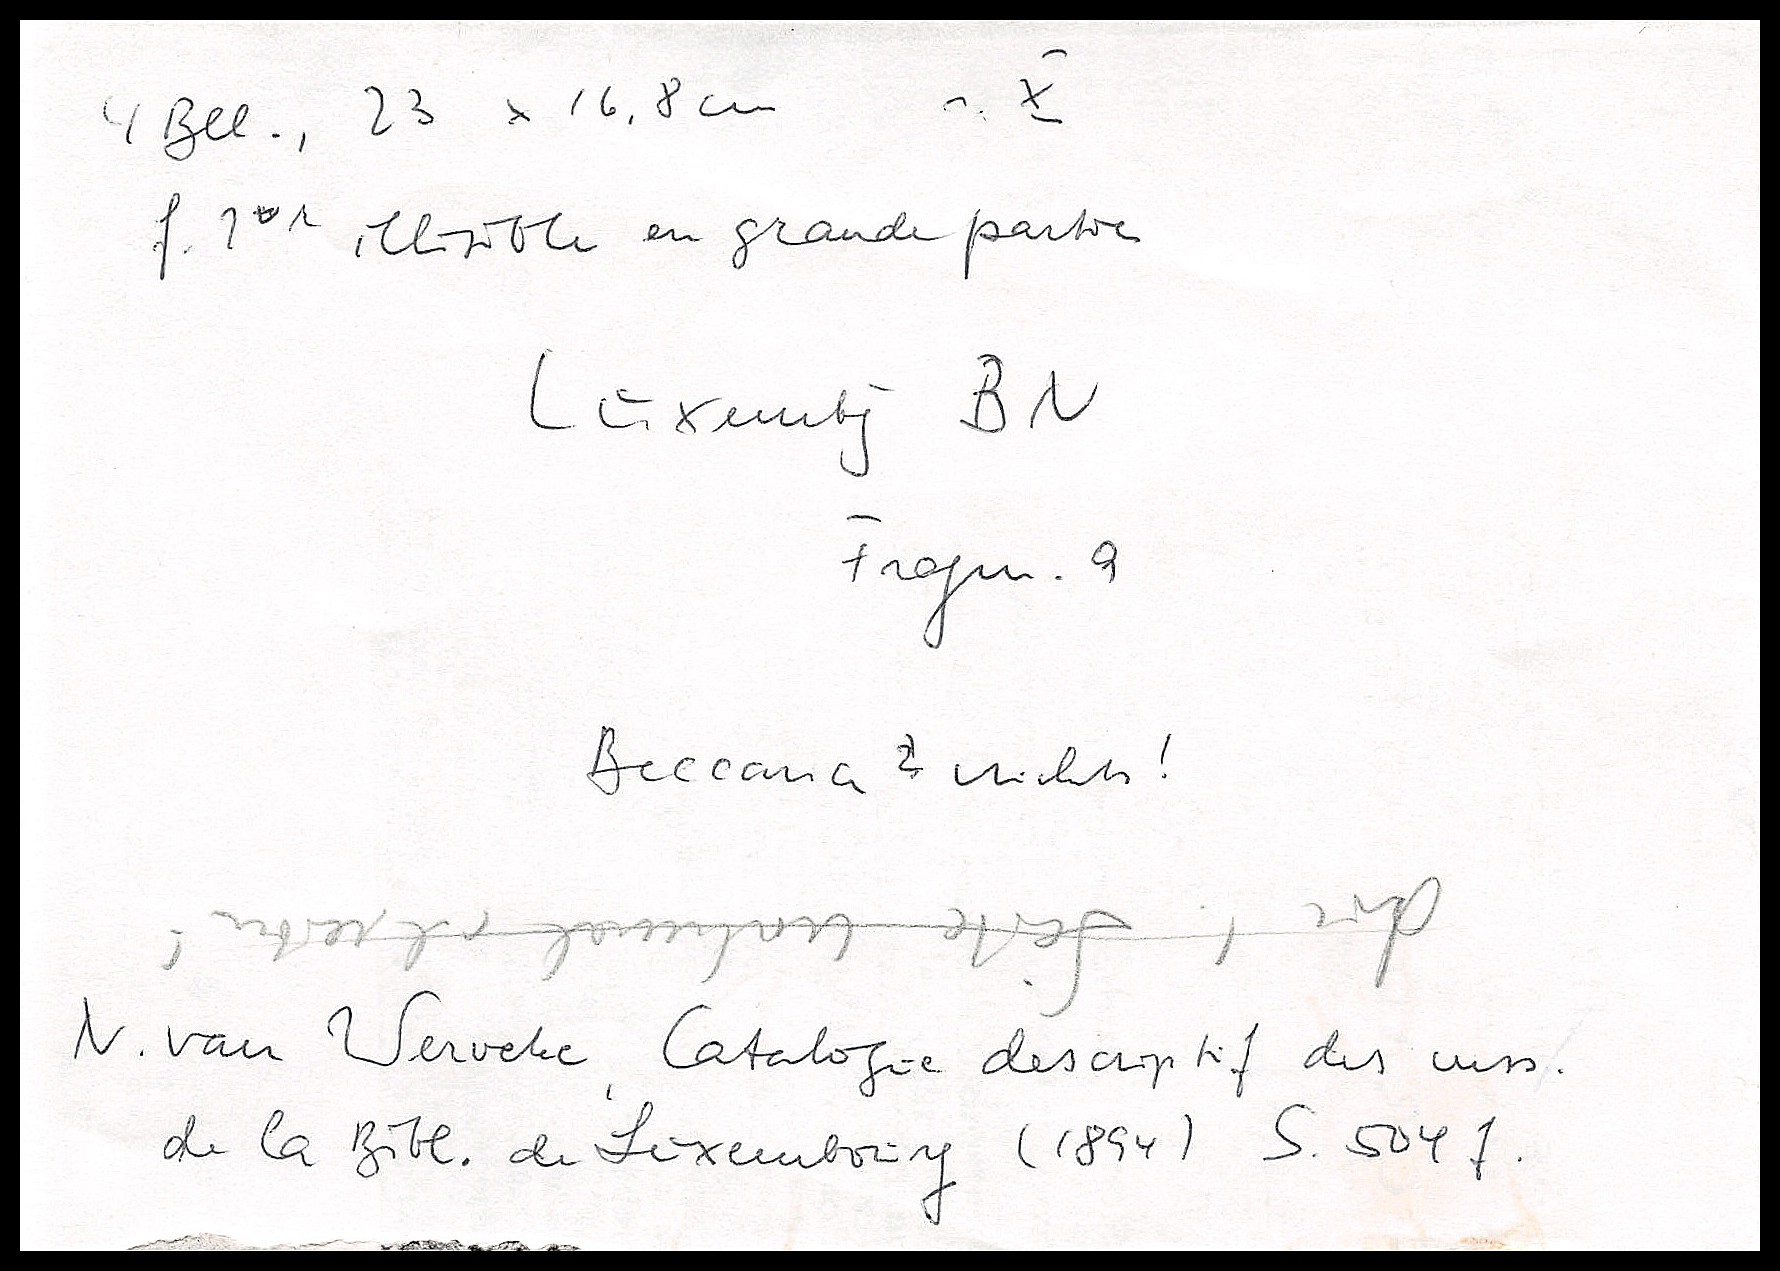 4 Bll., 23 x 16,8 cm s. X
f. 1 illisible en grande partie
Luxembg BN
Fragm. 9
Beccaria 2 nichts!
die 1. Seite nochmal abziehen!
N. van Werveke, Catalogue descriptif des mss.
de la Bibl. de Luxembourg (1894) S. 504 f.